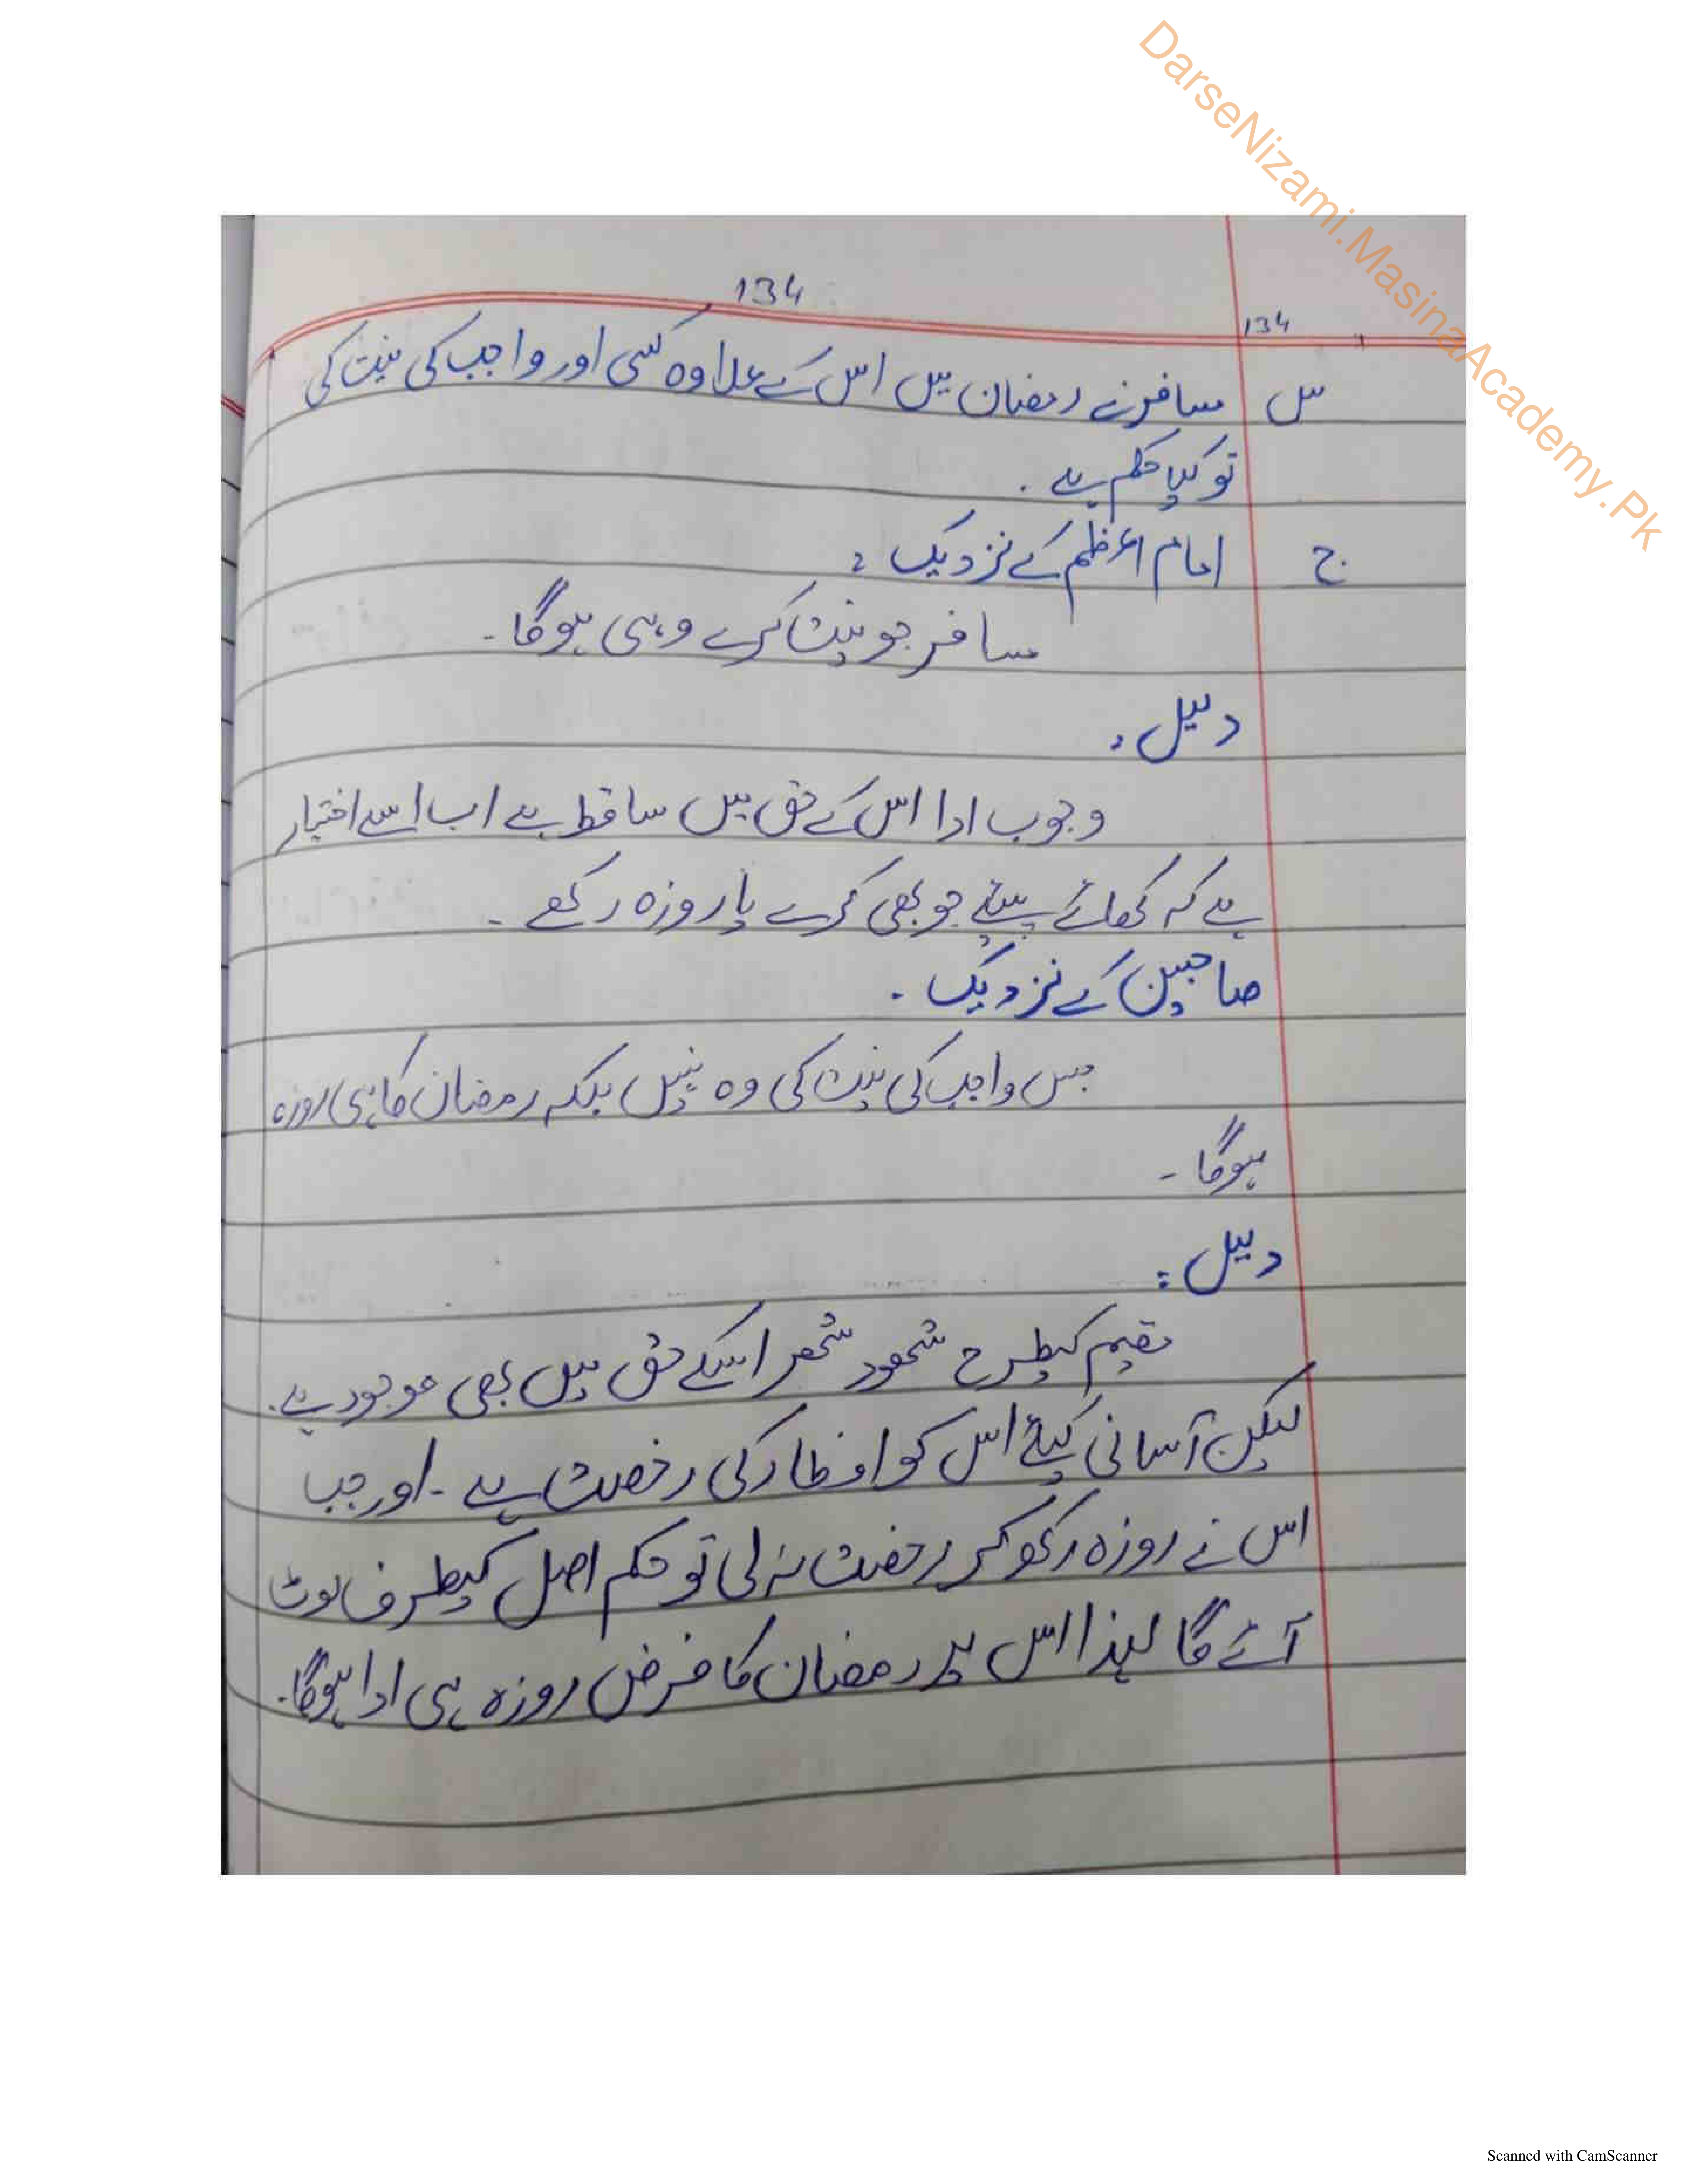 DarseNizami.MasinaAcademy.Pk
134
134
س مسافر نے رمضان میں اس کے علاوہ کسی اور واجب کی نیت کی
تو کیا حکم ہے ۔
ج امام اعظم کے نزدیک :
مسافر جو نیت کرے وہی ہوگا ۔
دلیل :
وجوب ادا اس کے حق میں ساقط ہے اب اسے اختیار
ہے کہ کھائے پیئے جو بھی کرے یا روزہ رکھے ۔
صاحبین کے نزدیک ۔
جس واجب کی نیت کی وہ نہیں بلکہ رمضان کا ہی روزہ
ہوگا ۔
دلیل :
مقیم کیطرح شھود شھر اسکے حق میں بھی موجود ہے ۔
لیکن آسانی کیلئے اس کو افطار کی رخصت ہے ۔ اور جب
اس نے روزہ رکھ کر رخصت نہ لی تو حکم اصل کیطرف لوٹ
آئے گا لہذا اس پر رمضان کا فرض روزہ ہی ادا ہوگا ۔
Scanned with CamScanner